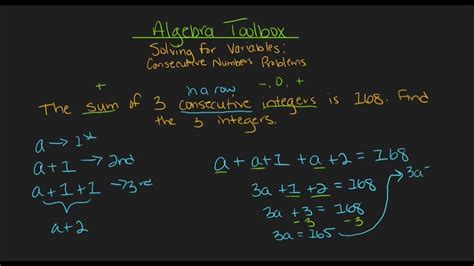 Algebra Toolbox
Solving for Variables:
Consecutive Numbers Problems
+ in a row -, 0, +
The sum of 3 consecutive integers is 168. Find
the 3 integers.
a → 1st
a+1 → 2nd
a+1+1 → 3rd
a+2
a + a+1 + a+2 = 168
3a + 1 + 2 = 168
3a + 3 = 168
-3 -3
3a = 165
3a-